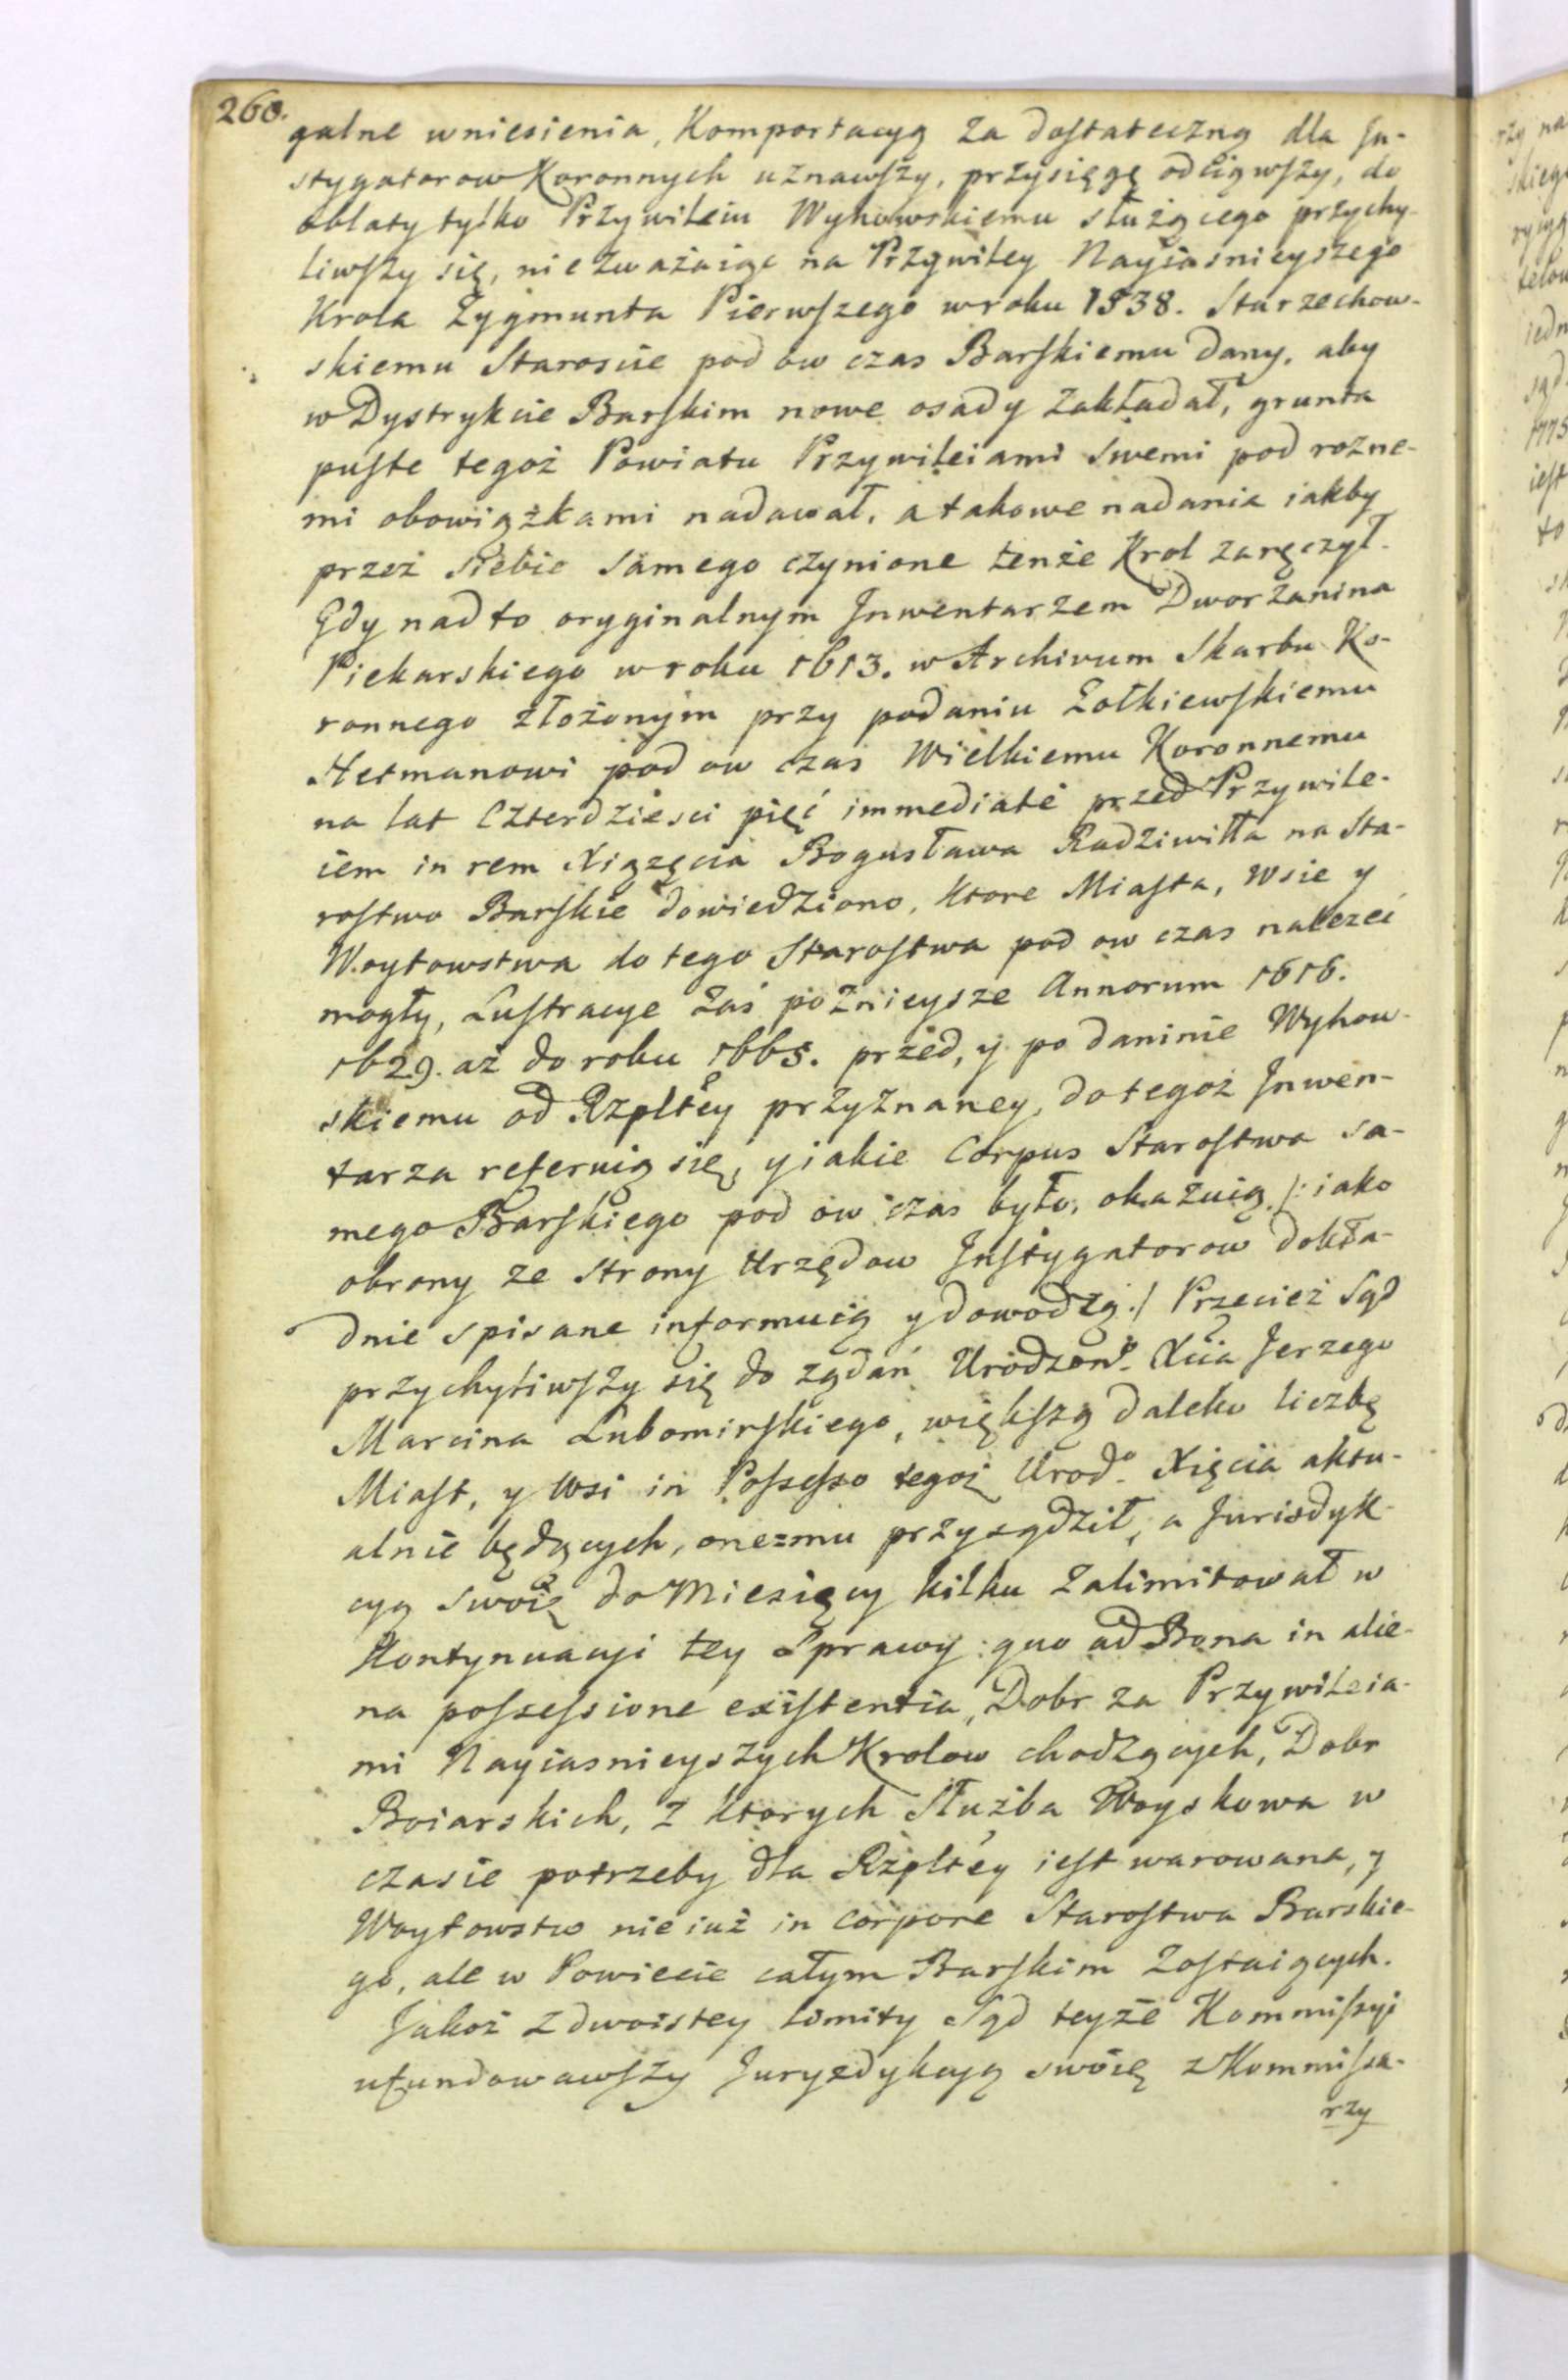 260.
galne wniesienia, Komportacyą za dostateczną dla In-
stygatorow Koronnych uznawszy, przysięgę odciąwszy, do
oblaty tylko Przywileiu Wyhowskiemu służącego przychy-
liwszy się, nie zważaiąc na Przywiley Nayiasnieyszego
Krola Zygmunta Pierwszego w roku 1538. Starzechow-
skiemu Staroscie pod ow czas Barskiemu dany, aby
w Dystrykcie Barskim nowe osady zakładał, grunta
puste tegoż Powiatu Przywileiami swemi pod rozne-
mi obowiązkami nadawał, a takowe nadania iakby
przez siebie samego czynione tenże Krol zaręczył.
Gdy nad to oryginalnym Inwentarzem Dworzanina
Piekarskiego w roku 1613. w Archivum Skarbu Ko-
ronnego złożonym przy podaniu Zołkiewskiemu
Hetmanowi pod ow czas Wielkiemu Koronnemu
na lat Czterdziesci pięć immediatè przed Przywile-
iem in rem Xiążęcia Bogusława Radziwiłła na Sta-
rostwo Barskie dowiedziono, ktore Miasta, Wsie y
Woytowstwa do tego Starostwa pod ow czas należeć
mogły, Lustracye zaś poznieysze Annorum 1616.
1629. aż do roku 1665. przed, y po daninie Wyhow-
skiemu od Rzpltey przyznaney, do tegoż Inwen-
tarza referuią się, y iakie Corpus Starostwa sa-
mego Barskiego pod ow czas było, okazuią /: iako
obrony ze strony Urzędow Instygatorow dokła-
dnie spisane informuią y dowodzą :/ Przecież Sąd
przychyliwszy się do ządań Urodzon° Xcia Jerzego
Marcina Lubomirskiego, większą daleko liczbę
Miast, y Wsi in Possesso tegoż Urod° Xięcia aktu-
alnie będących, onezmu przysądził, a Jurisdyk-
cyą swoię do Miesięcy kilku zalimitował w
Kontynuacyi tey Sprawy quo ad Bona in alie-
na possessione existentia, Dobr za Przywileia-
mi Nayiasnieyszych Krolow chodzących, Dobr
Boiarskich, z ktorych Służba Woyskowa w
czasie potrzeby dla Rzpltey iest warowana, y
Woytowstw nie iuż in corpore Starostwa Barskie-
go, ale w Powiecie całym Barskim zostaiących.
Jakoż z dwoistey limity Sąd teyże Kommissyi
ufundowawszy Juryzdykcyą swoię z Kommissa-
rzy